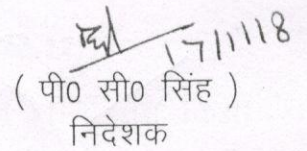 17/11/18
( पी0 सी0 सिंह )
निदेशक